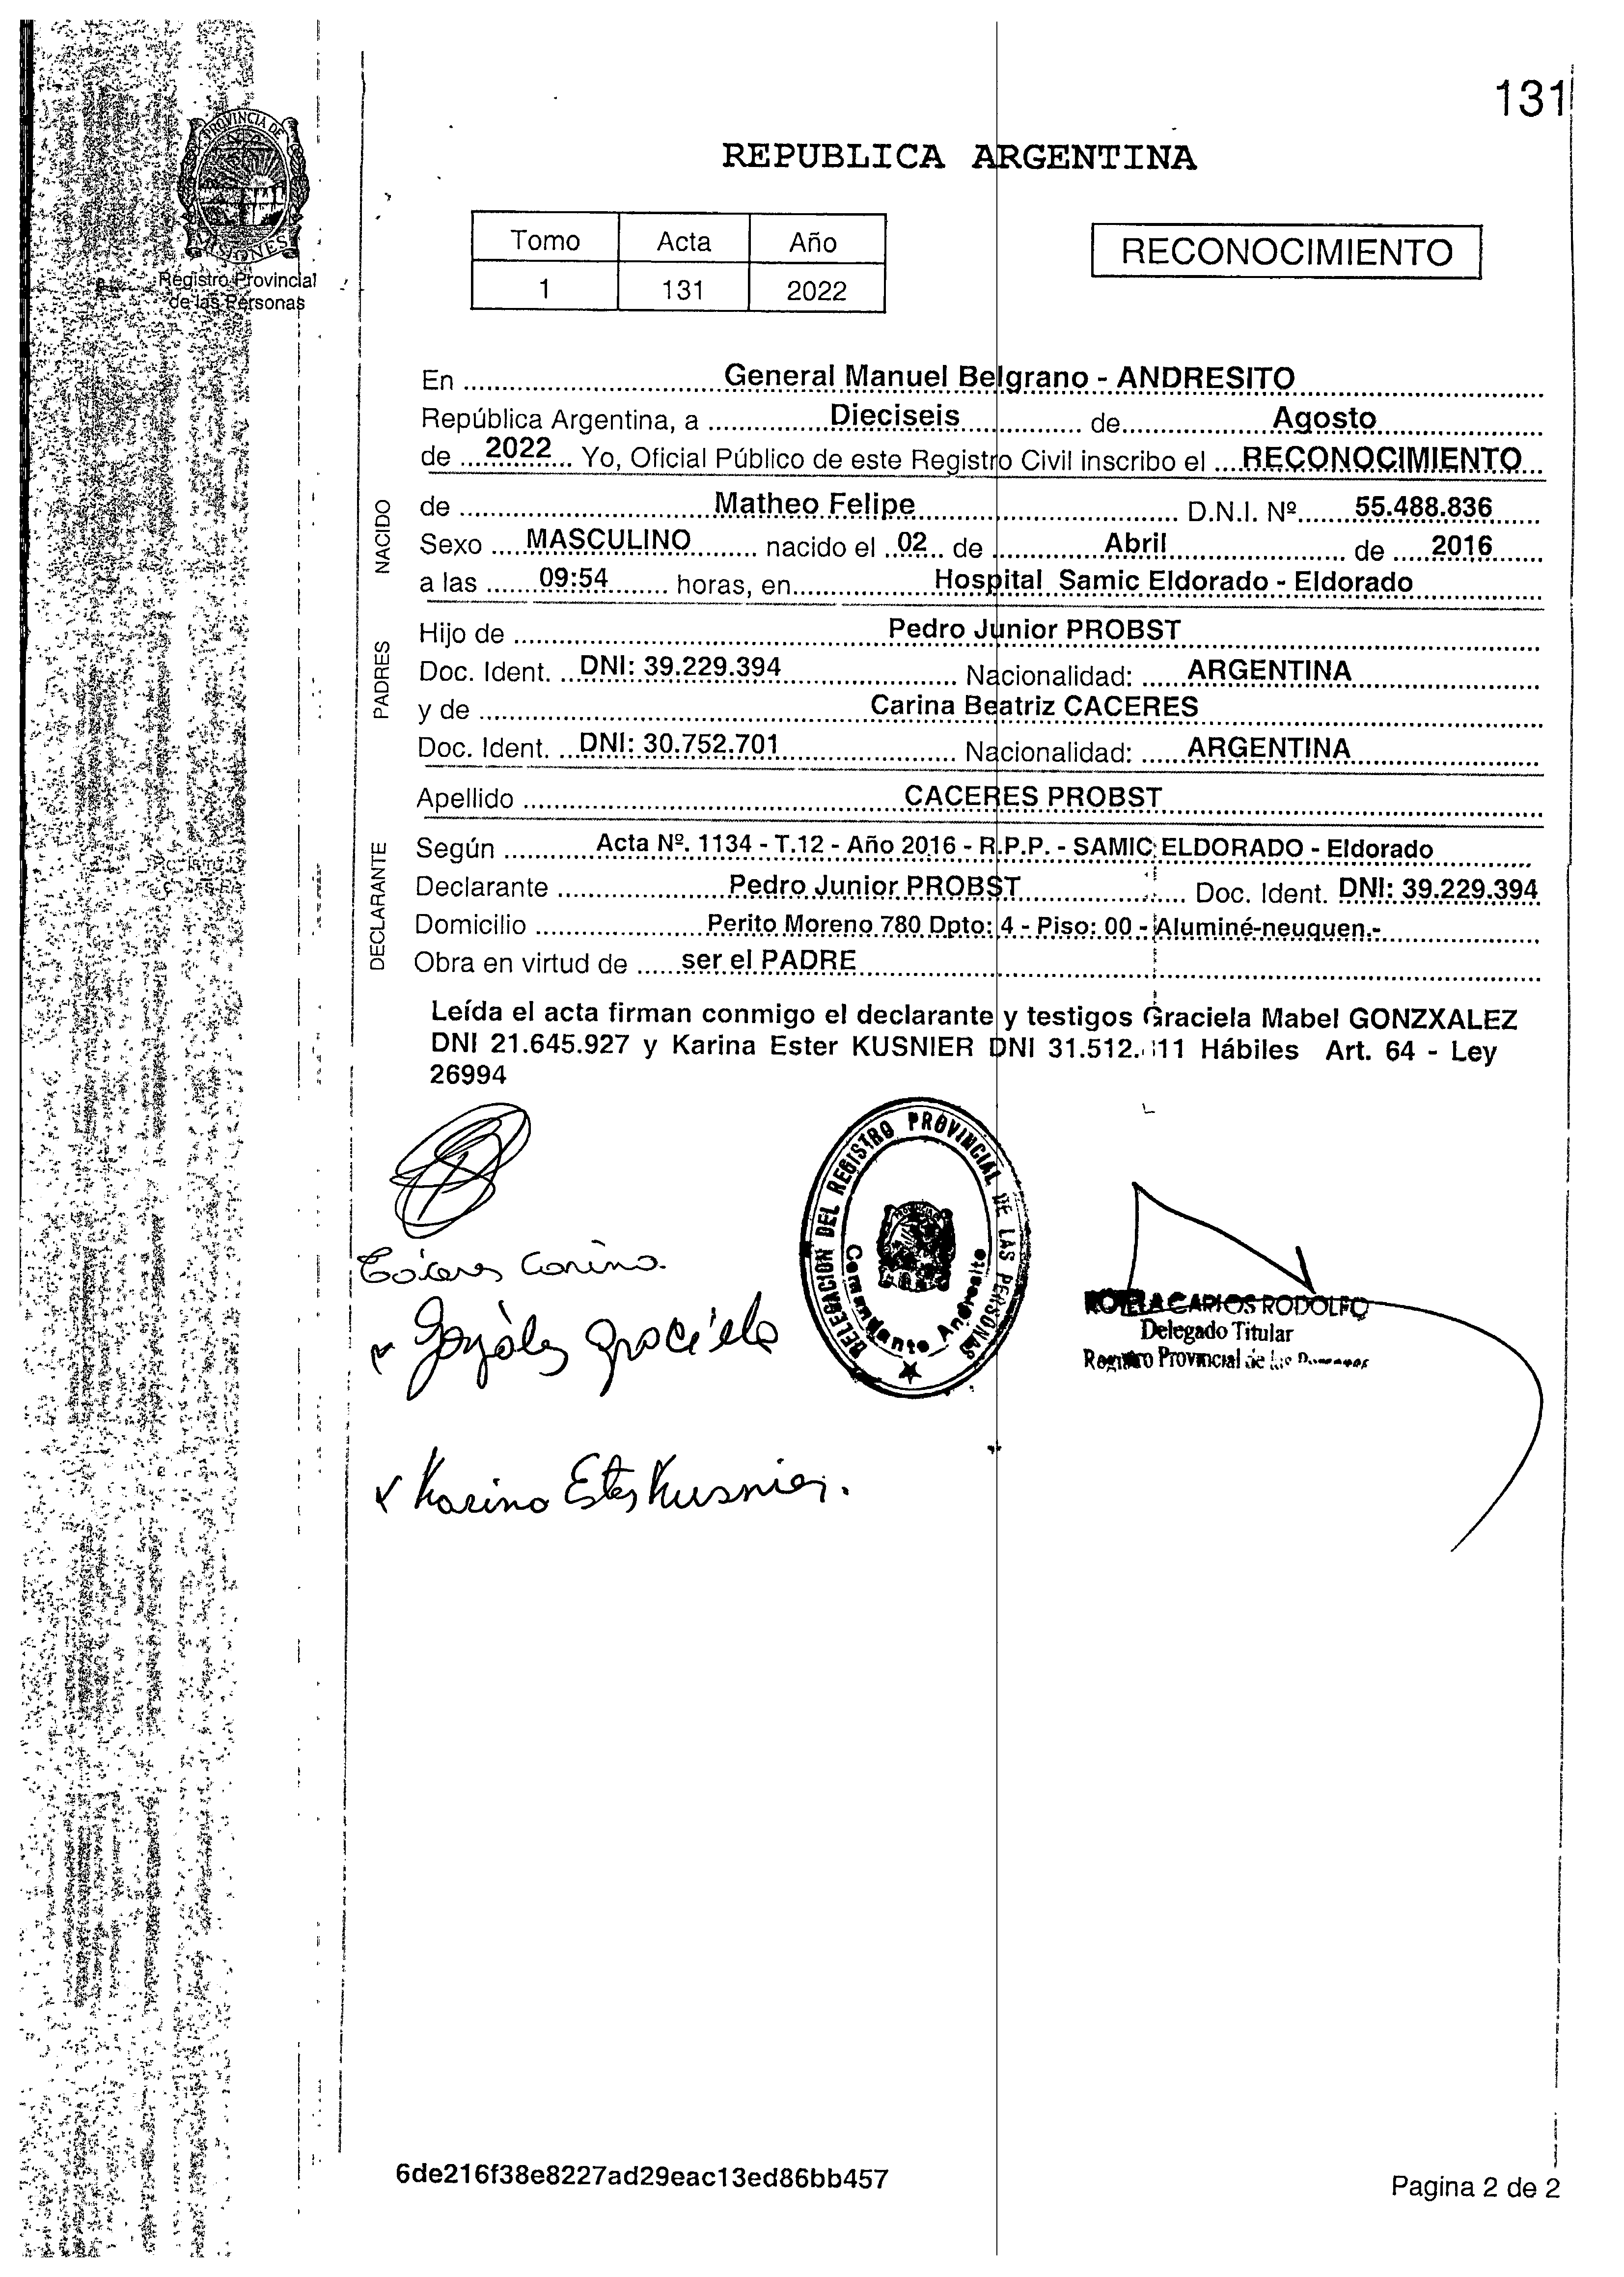 131
PROVINCIA DE
MISIONES
Registro Provincial
de las Personas
REPUBLICA ARGENTINA
Tomo Acta Año
1 131 2022
RECONOCIMIENTO
En General Manuel Belgrano - ANDRESITO
República Argentina, a Dieciseis de Agosto
de 2022 Yo, Oficial Público de este Registro Civil inscribo el RECONOCIMIENTO
NACIDO
de Matheo Felipe D.N.I. Nº 55.488.836
Sexo MASCULINO nacido el 02 de Abril de 2016
a las 09:54 horas, en Hospital Samic Eldorado - Eldorado
PADRES
Hijo de Pedro Junior PROBST
Doc. Ident. DNI: 39.229.394 Nacionalidad: ARGENTINA
y de Carina Beatriz CACERES
Doc. Ident. DNI: 30.752.701 Nacionalidad: ARGENTINA
Apellido CACERES PROBST
DECLARANTE
Según Acta Nº. 1134 - T.12 - Año 2016 - R.P.P. - SAMIC ELDORADO - Eldorado
Declarante Pedro Junior PROBST Doc. Ident. DNI: 39.229.394
Domicilio Perito Moreno 780 Dpto: 4 - Piso: 00 - Aluminé-neuquen.-
Obra en virtud de ser el PADRE
Leída el acta firman conmigo el declarante y testigos Graciela Mabel GONZXALEZ
DNI 21.645.927 y Karina Ester KUSNIER DNI Hábiles Art. 64 - Ley
26994
Cáceres Carina.
Gonzáles Graciela
Karina Ester Kusnier.
DELEGACION DEL REGISTRO PROVINCIAL DE LAS PERSONAS
Comandante Andresito
CARLOS RODOLFO
Delegado Titular
Registro Provincial de las
6de216f38e8227ad29eac13ed86bb457
Pagina 2 de 2